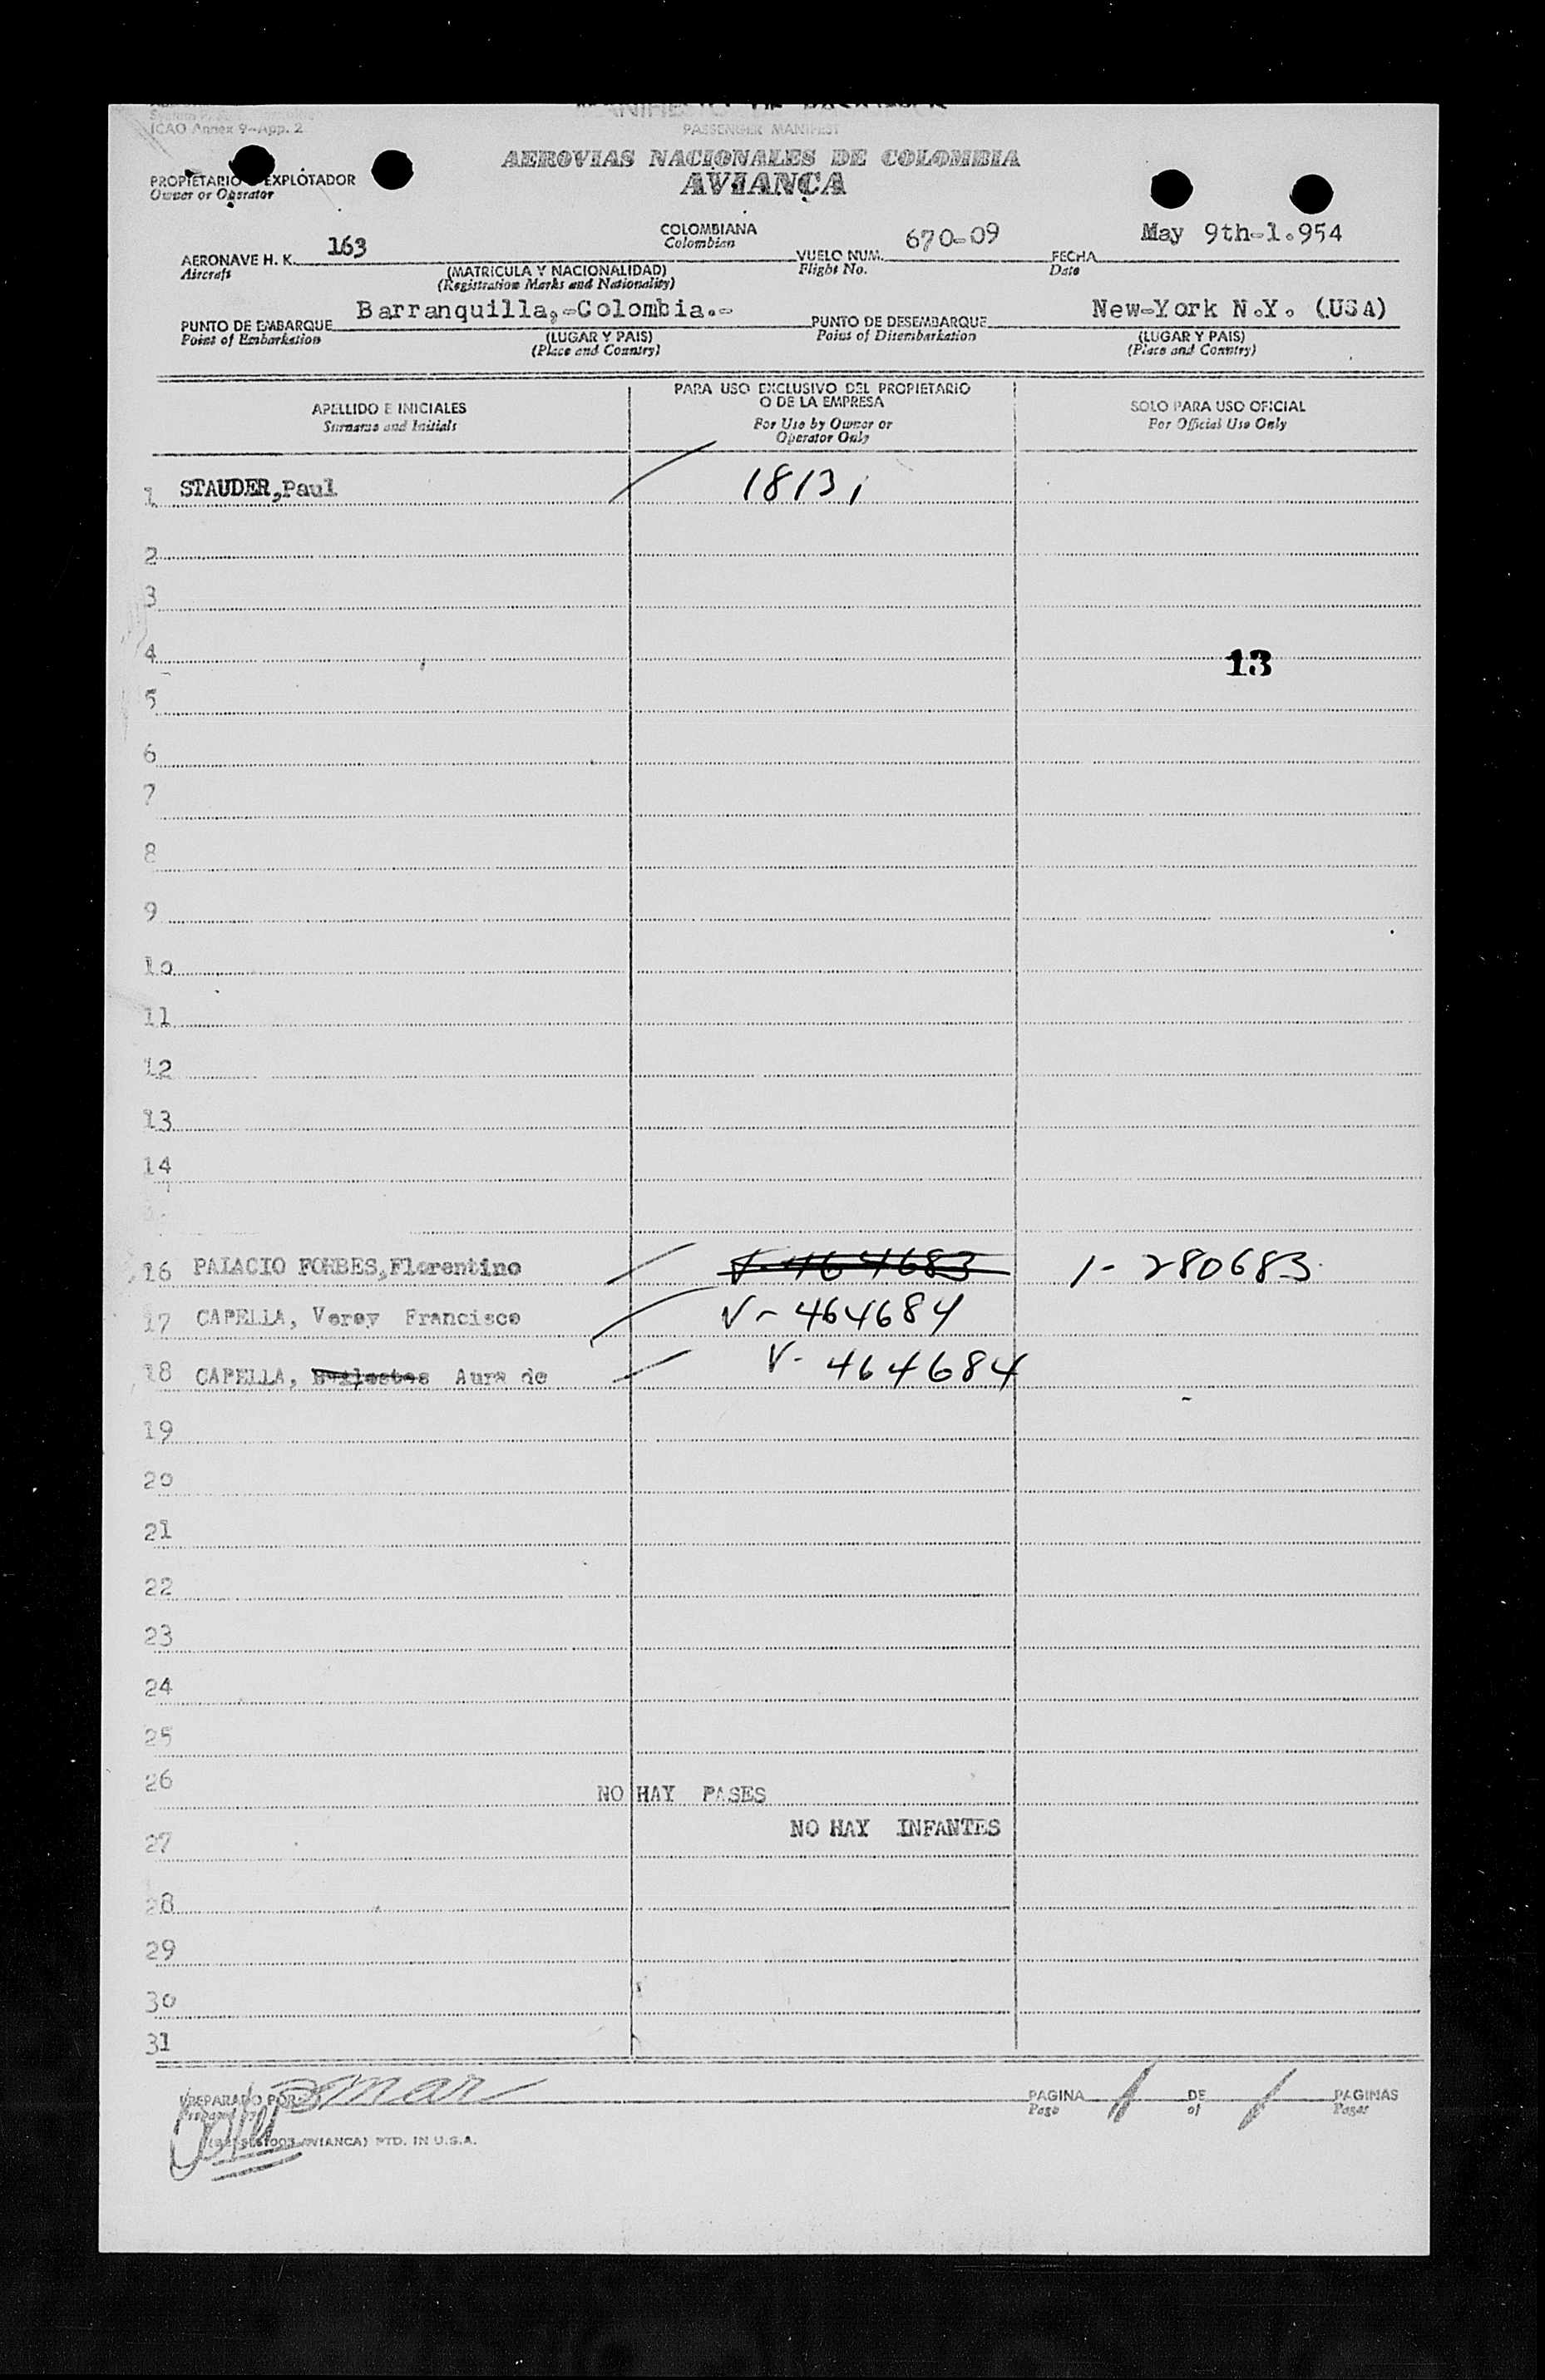 ICAO Annex 9-App. 2
PASSENGER MANIFEST
AEROVIAS NACIONALES DE COLOMBIA
AVIANCA
PROPIETARIO EXPLOTADOR
Owner or Operator
AERONAVE H. K. 163 COLOMBIANA VUELO NUM. 670-09 FECHA May 9th-1.954
Aircraft Colombian Flight No. Date
(MATRICULA Y NACIONALIDAD)
(Registration Marks and Nationality)
PUNTO DE EMBARQUE Barranquilla,-Colombia.- PUNTO DE DESEMBARQUE New-York N.Y. (USA)
Point of Embarkation (LUGAR Y PAIS) Point of Disembarkation (LUGAR Y PAIS)
(Place and Country) (Place and Country)
APELLIDO E INICIALES PARA USO EXCLUSIVO DEL PROPIETARIO O DE LA EMPRESA SOLO PARA USO OFICIAL
Surname and Initials For Use by Owner or Operator Only For Official Use Only
1 STAUDER,Paul 18131
2
3
4 13
5
6
7
8
9
10
11
12
13
14
16 PALACIO FORBES,Florentino V-464683 1-280683
17 CAPELLA, Verey Francisco V-464684
18 CAPELLA, Aura de V-464684
19
20
21
22
23
24
25
26 NO HAY PASES
NO HAY INFANTES
27
28
29
30
31
PREPARADO POR PAGINA 1 DE 1 PAGINAS
Prepared by Page of Pages
AVIANCA) PTD. IN U.S.A.